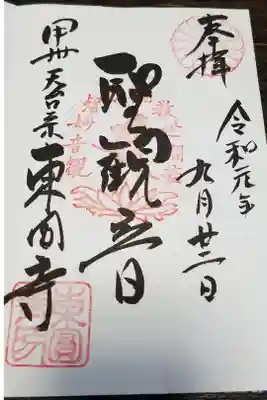 奉拝
令和元年
九月廿二日
聖観音
甲州天台宗東圓寺
東圓寺印